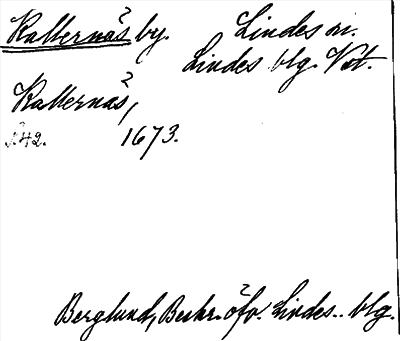 Kallernäs by. Lindes sn.
Lindes blg. Vst.
Kallernäs,
s. 42. 1673.
Berglund, Beskr. öfv. Lindes.. blg.